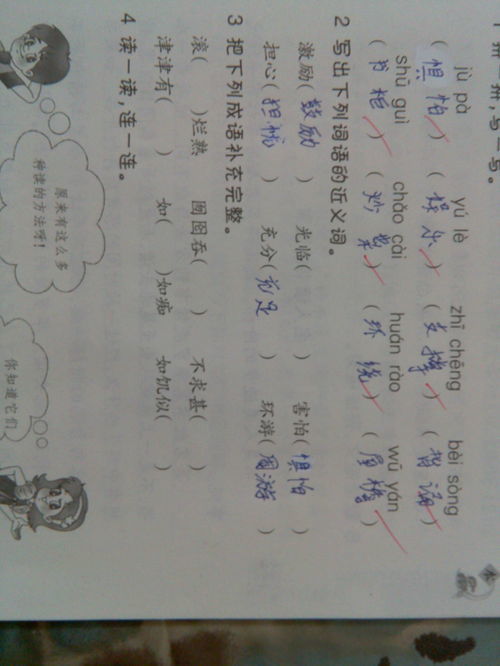 拼一拼,写一写。
jù pà yú lè zhī chēng bèi sòng
(惧怕) (娱乐) (支撑) (背诵)
shū guì chǎo cài huán rào wū yán
(书柜) (炒菜) (环绕) (屋檐)
2 写出下列词语的近义词。
激励(鼓励) 光临( ) 害怕(惧怕)
担心(担忧) 充分(充足) 环游(周游)
3 把下列成语补充完整。
滚( )烂熟 囫囵吞( ) 不求甚( )
津津有( ) 如( )如痴 如饥似( )
4 读一读,连一连。
原来有这么多
种读的方法呀!
你知道它们